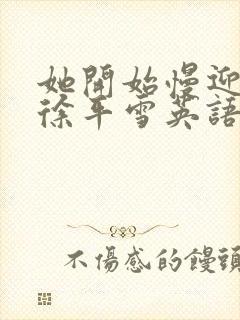 她開始慢迎
徐平雪英語
不傷感的饅頭